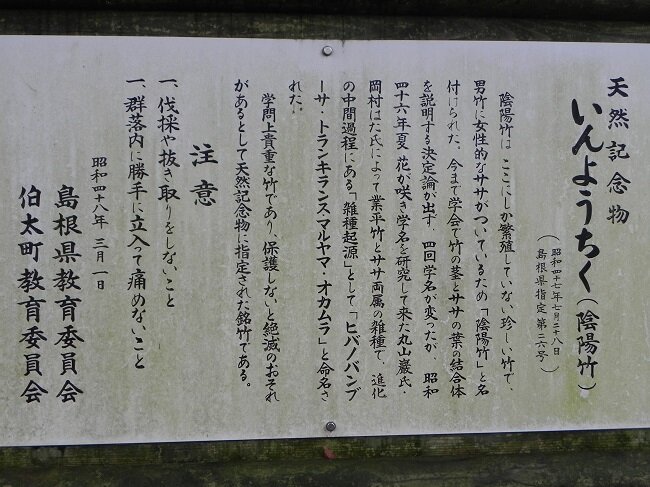 天然記念物
いんようちく（陰陽竹）
（昭和四十七年七月二十八日
島根県指定第二六号）
陰陽竹は ここにしか繁殖していない珍しい竹で、
男竹に女性的なササがついているため「陰陽竹」と名
付けられた。今まで学会で竹の茎とササの葉の結合体
を説明する決定論が出ず 四回学名が変ったが、昭和
四十六年夏 花が咲き学名を研究して来た丸山巌氏・
岡村はた氏によって業平竹とササ両属の雑種で、進化
の中間過程にある「雑種起源」として「ヒバノバンブ
ーサ・トランキランス・マルヤマ・オカムラ」と命名さ
れた。
学問上貴重な竹であり、保護しないと絶滅のおそれ
があるとして天然記念物に指定された銘竹である。
注意
一、伐採や抜き取りをしないこと
一、群落内に勝手に立入て痛めないこと
昭和四十八年 三月一日
島根県教育委員会
伯太町教育委員会